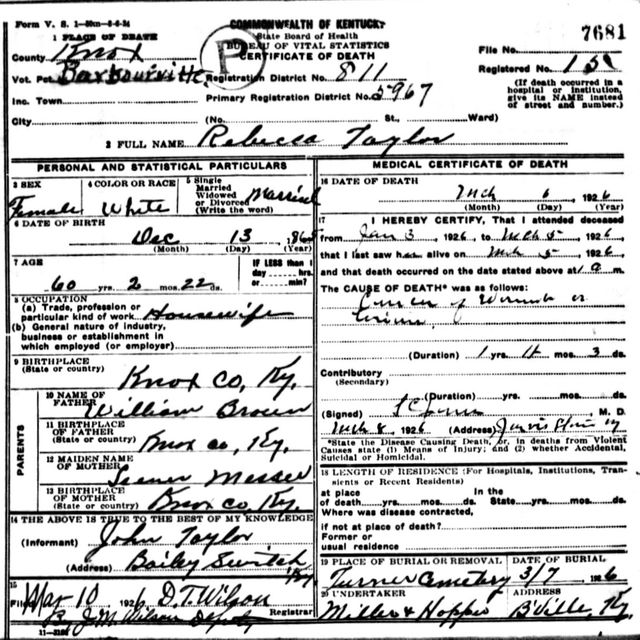 Form V. S. 1-50M-8-4-24
COMMONWEALTH OF KENTUCKY
State Board of Health
BUREAU OF VITAL STATISTICS
CERTIFICATE OF DEATH
7681
1 PLACE OF DEATH
County Knox
File No.
Vot. Pct. Barbourville
Registration District No. 811
Registered No. 151
Inc. Town
Primary Registration District No. 5967
(If death occurred in a hospital or institution, give its NAME instead of street and number.)
City (No. St., Ward)
2 FULL NAME Rebecca Taylor
PERSONAL AND STATISTICAL PARTICULARS
3 SEX Female
4 COLOR OR RACE White
5 Single Married Widowed or Divorced (Write the word) Married
6 DATE OF BIRTH
Dec 13 1865
(Month) (Day) (Year)
7 AGE
60 yrs. 2 mos. 22 ds.
IF LESS than 1 day hrs. or min.?
8 OCCUPATION
(a) Trade, profession or particular kind of work Housewife
(b) General nature of industry, business or establishment in which employed (or employer)
9 BIRTHPLACE
(State or country)
Knox Co, Ky.
PARENTS
10 NAME OF FATHER William Brown
11 BIRTHPLACE OF FATHER (State or country) Knox Co, Ky.
12 MAIDEN NAME OF MOTHER Messer
13 BIRTHPLACE OF MOTHER (State or country) Knox Co, Ky.
14 THE ABOVE IS TRUE TO THE BEST OF MY KNOWLEDGE
(Informant) John Taylor
(Address) Bailey Switch Ky.
15
Filed Mar 10 1926 D.T. Wilson Registrar
By J.M. Wilson Deputy
MEDICAL CERTIFICATE OF DEATH
16 DATE OF DEATH
Mch 6, 1926
(Month) (Day) (Year)
17 I HEREBY CERTIFY, That I attended deceased
from Jan 3, 1926, to Mch 5, 1926,
that I last saw h alive on Mch 5, 1926,
and that death occurred on the date stated above at 1 a m.
The CAUSE OF DEATH* was as follows:
Cancer of Womb or
(Duration) 1 yrs. 11 mos. 3 ds.
Contributory
(Secondary)
(Duration) yrs. mos. ds.
(Signed) M. D.
Mch 8, 1926 (Address)
*State the Disease Causing Death, or, in deaths from Violent Causes state (1) Means of Injury; and (2) whether Accidental, Suicidal or Homicidal.
18 LENGTH OF RESIDENCE (For Hospitals, Institutions, Transients or Recent Residents)
at place of death yrs. mos. ds. In the State yrs. mos. ds.
Where was disease contracted,
if not at place of death?
Former or
usual residence
19 PLACE OF BURIAL OR REMOVAL
Turner Cemetery
DATE OF BURIAL
3/7 1926
20 UNDERTAKER
Miller & Hopper
ADDRESS
B'Ville, Ky.